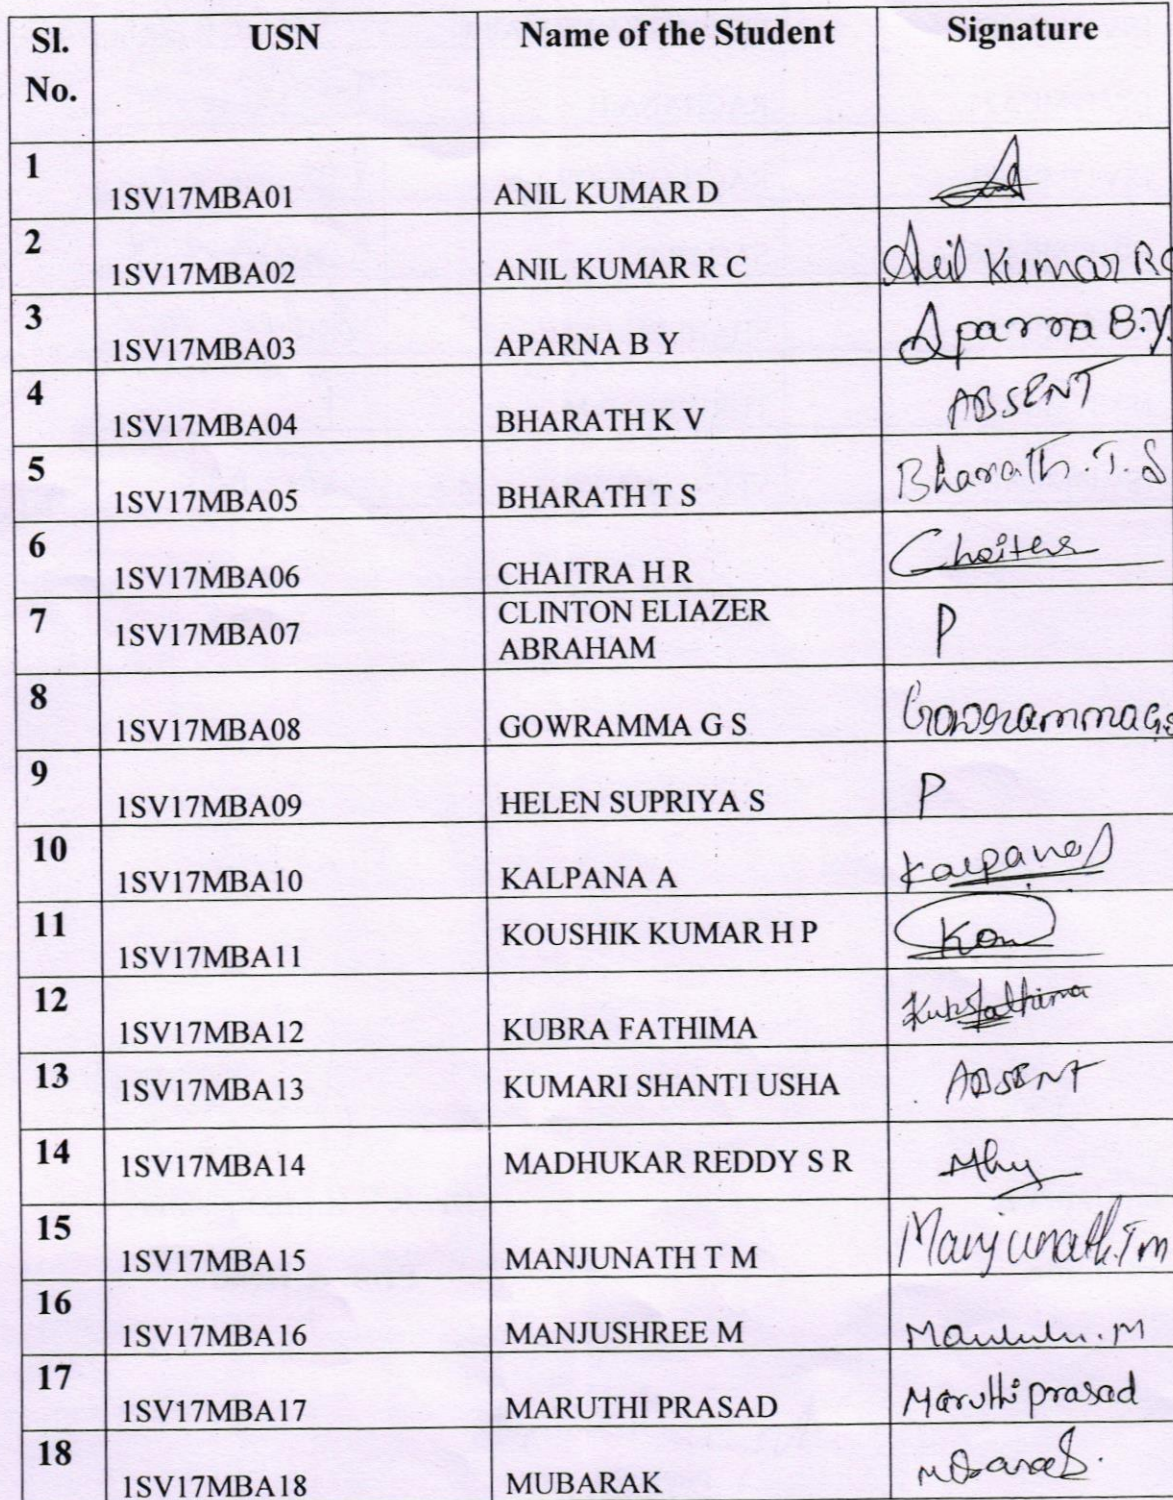 Sl. No. USN Name of the Student Signature
1 1SV17MBA01 ANIL KUMAR D
2 1SV17MBA02 ANIL KUMAR R C Anil Kumar RC
3 1SV17MBA03 APARNA B Y Aparna B.Y.
4 1SV17MBA04 BHARATH K V ABSENT
5 1SV17MBA05 BHARATH T S Bharath.T.S
6 1SV17MBA06 CHAITRA H R Chaitra
7 1SV17MBA07 CLINTON ELIAZER ABRAHAM P
8 1SV17MBA08 GOWRAMMA G S Gowramma G.S
9 1SV17MBA09 HELEN SUPRIYA S P
10 1SV17MBA10 KALPANA A Kalpana
11 1SV17MBA11 KOUSHIK KUMAR H P Kou
12 1SV17MBA12 KUBRA FATHIMA Kubra fathima
13 1SV17MBA13 KUMARI SHANTI USHA ABSENT
14 1SV17MBA14 MADHUKAR REDDY S R
15 1SV17MBA15 MANJUNATH T M Manjunath.T m
16 1SV17MBA16 MANJUSHREE M
17 1SV17MBA17 MARUTHI PRASAD Maruthi prasad
18 1SV17MBA18 MUBARAK